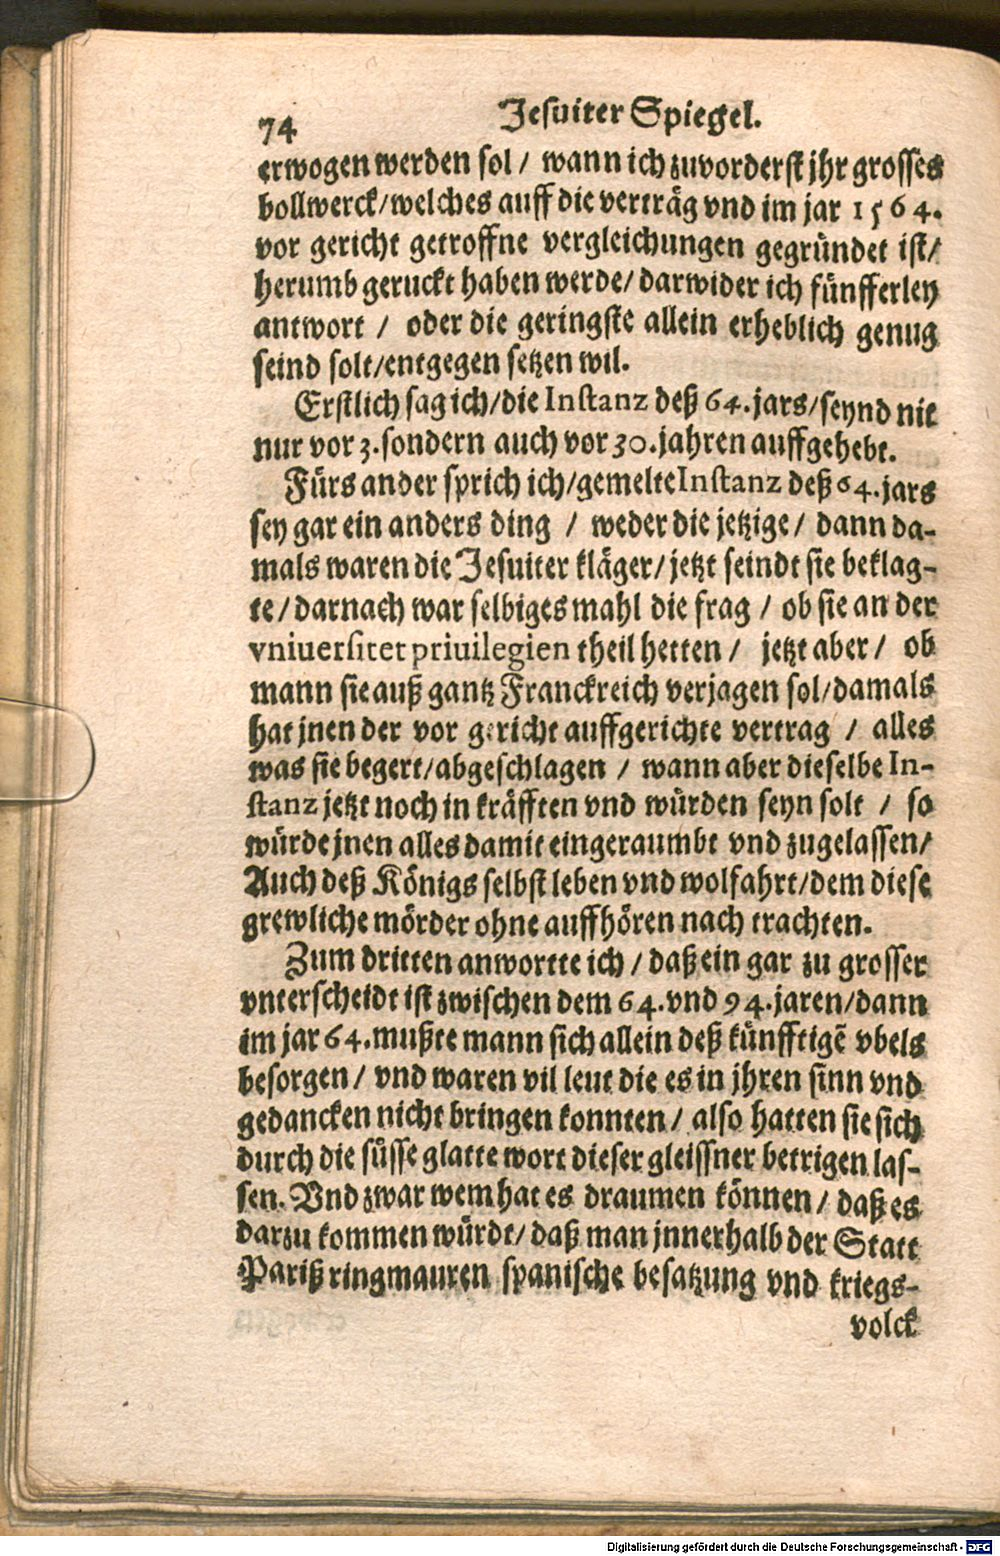 74
Jesuiter Spiegel.
erwogen werden sol / wann ich zuvorderst jhr grosses
bollwerck/welches auff die verträg vnd im jar 1564.
vor gericht getroffne vergleichungen gegründet ist/
herumb geruckt haben werde/ darwider ich fünfferley
antwort / oder die geringste allein erheblich genug
seind solt/entgegen setzen wil.
Erstlich sag ich/die Instanz deß 64. jars/seynd nit
nur vor 3. sondern auch vor 30. jahren auffgehebt.
Fürs ander sprich ich/gemelte Instanz deß 64. jars
sey gar ein anders ding / weder die jetzige/ dann da-
mals waren die Jesuiter kläger/ jetzt seindt sie beklag-
te/ darnach war selbiges mahl die frag / ob sie an der
vniuersitet priuilegien theil hetten / jetzt aber / ob
mann sie auß gantz Franckreich verjagen sol/damals
hat jnen der vor gericht auffgerichte vertrag / alles
was sie begert/abgeschlagen / wann aber dieselbe In-
stanz jetzt noch in kräfften vnd würden seyn solt / so
würde jnen alles damit eingeraumbt vnd zugelassen/
Auch deß Königs selbst leben vnd wolfahrt/dem diese
grewliche mörder ohne auffhören nach trachten.
Zum dritten anwortte ich / daß ein gar zu grosser
vnterscheidt ist zwischen dem 64. vnd 94. jaren/dann
im jar 64. mußte mann sich allein deß künfftigẽ vbels
besorgen / vnd waren vil leut die es in jhren sinn vnd
gedancken nicht bringen konnten / also hatten sie sich
durch die süsse glatte wort dieser gleissner betrigen las-
sen. Vnd zwar wem hat es draumen können / daß es
darzu kommen würde/ daß man jnnerhalb der Statt
Pariß ringmauren spanische besatzung vnd kriegs-
volck
Digitalisierung gefördert durch die Deutsche Forschungsgemeinschaft - DFG